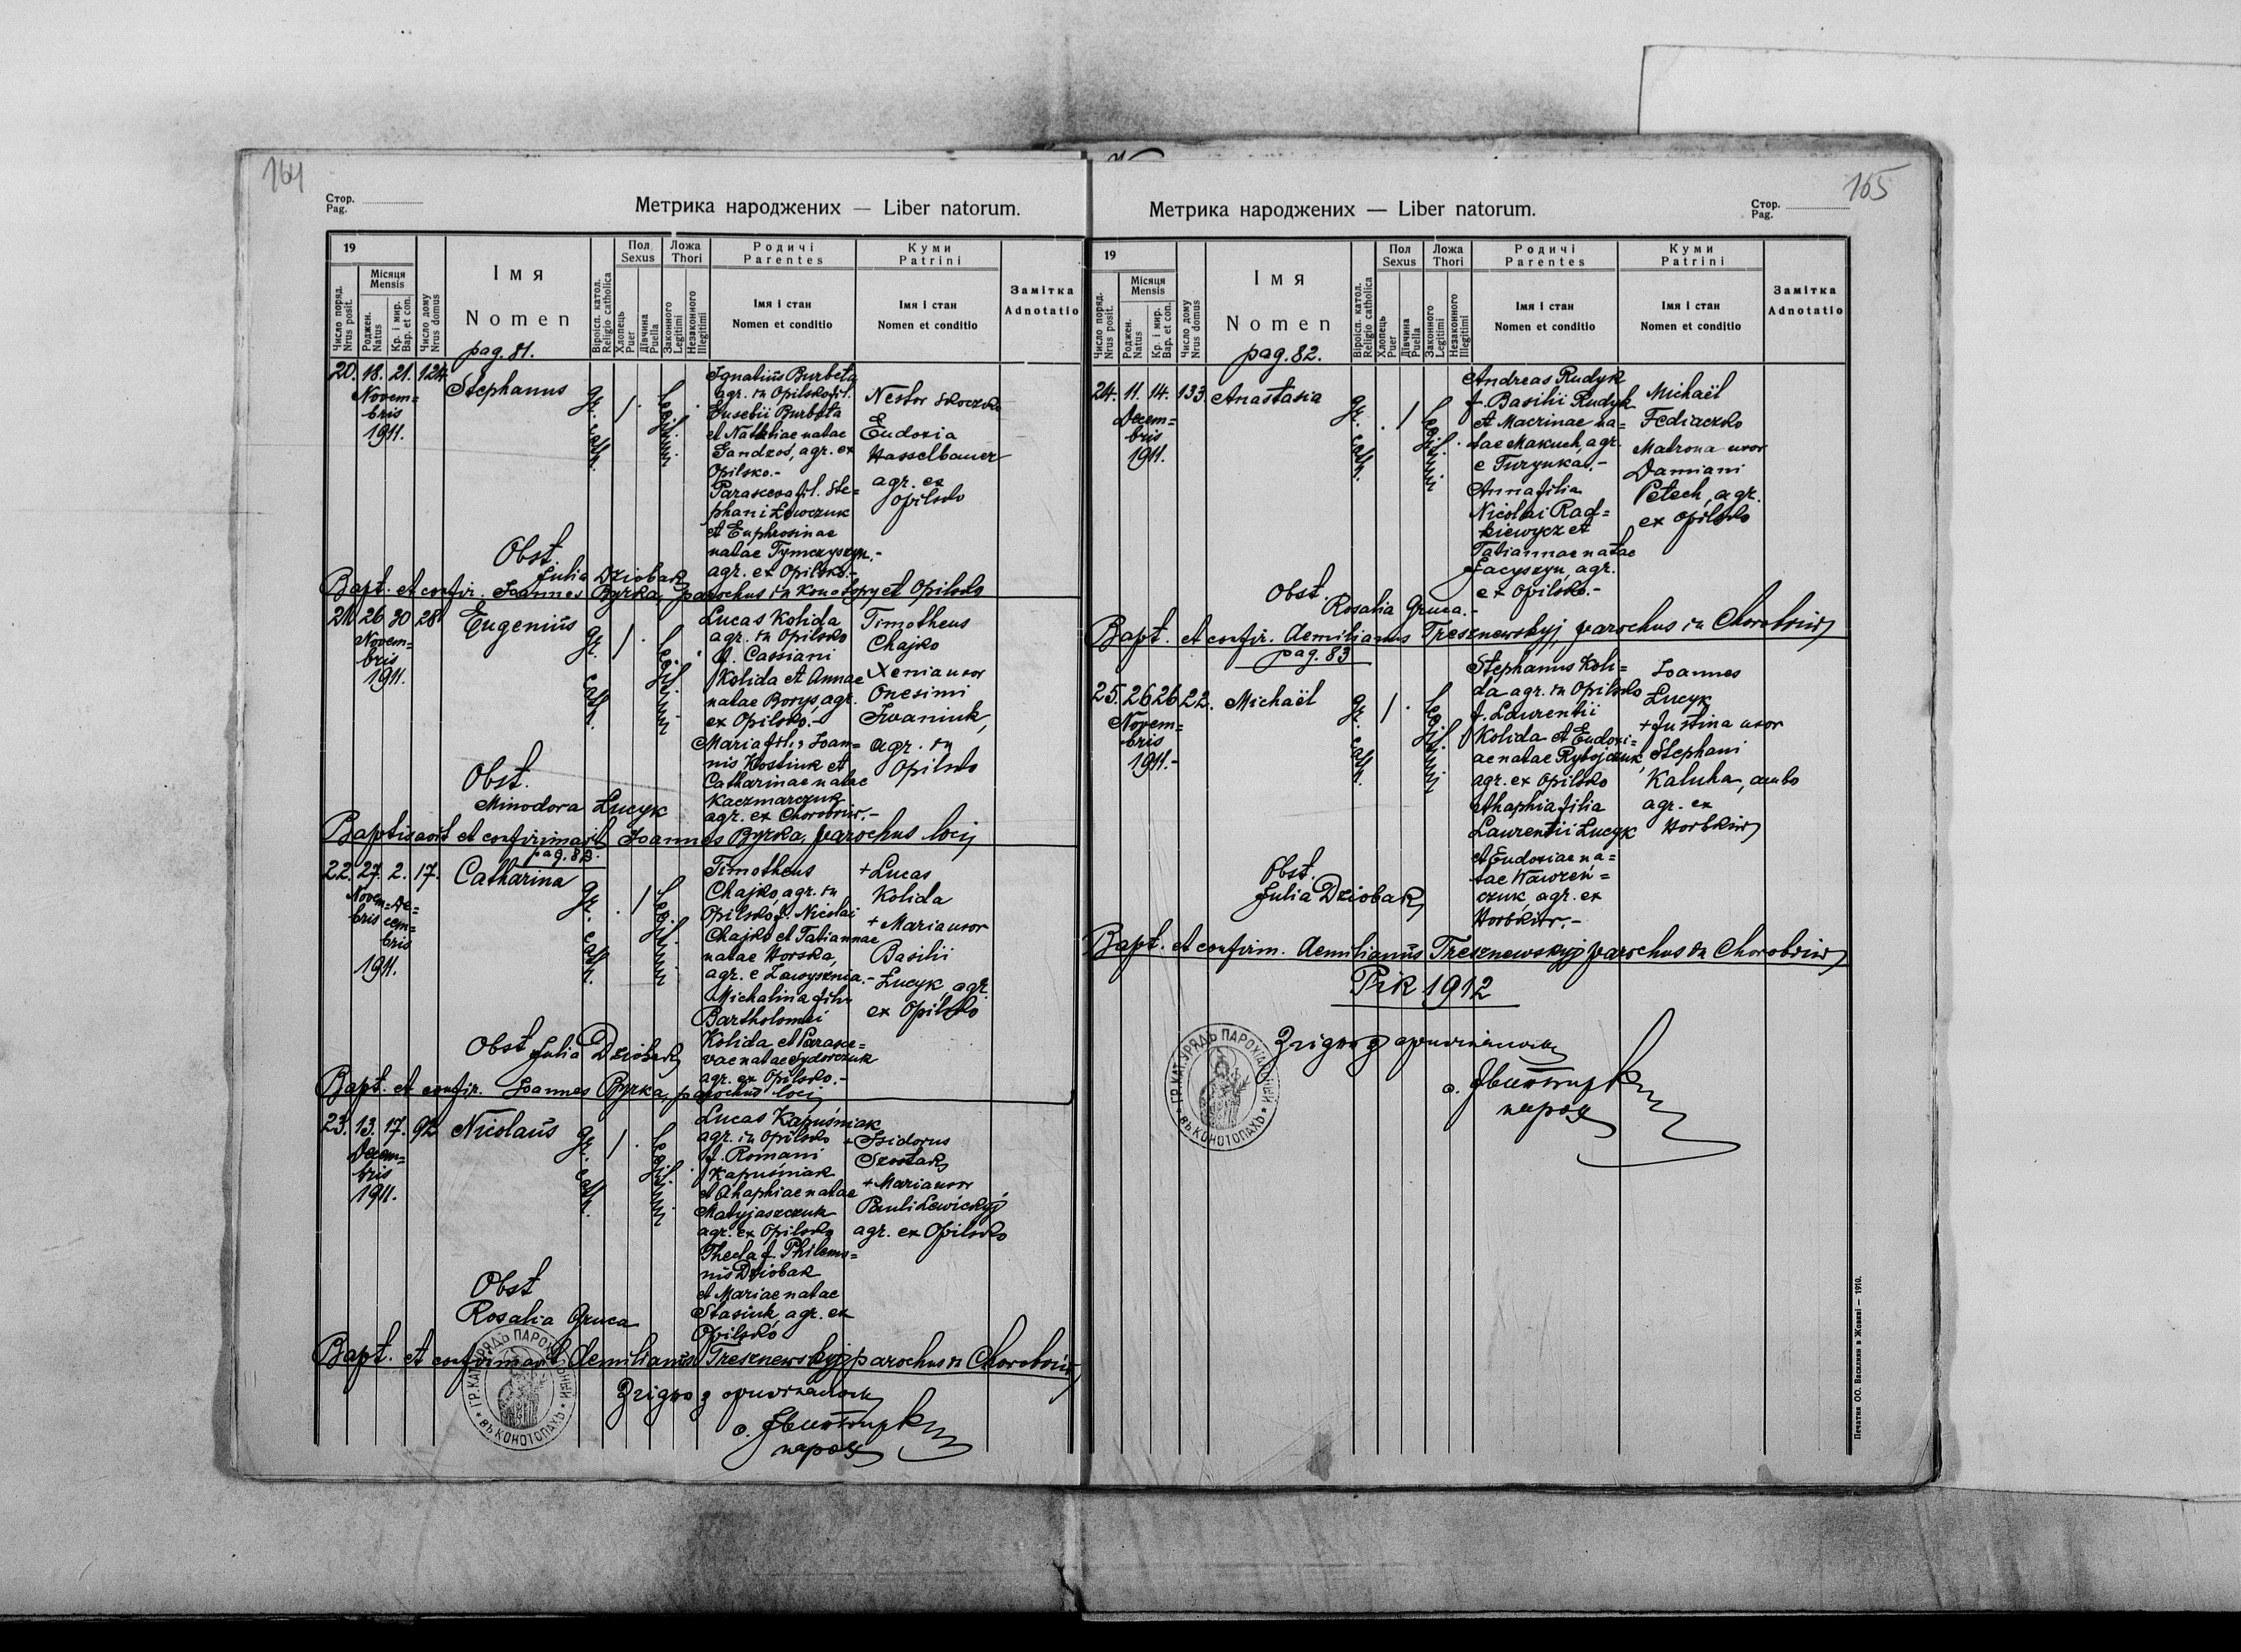 164
Стор.
Pag.
Метрика народжених — Liber natorum.
19
Число поряд.
Nrus posit.
Місяця
Mensis
Роджен.
Natus
Кр. і мир.
Bap. et con.
Число дому
Nrus domus
Імя
Nomen
pag. 81.
Віроісп. катол.
Religio catholica
Пол
Sexus
Хлопець
Puer
Дівчина
Puella
Ложа
Thori
Законного
Legitimi
Незаконного
Illegitimi
Родичі
Parentes
Імя і стан
Nomen et conditio
Куми
Patrini
Імя і стан
Nomen et conditio
Замітка
Adnotatio
20. 18. 21. 124
Novem=
bris
1911.
Stephanus
gr. cath.
1 .
Legitimi .
Ignatius Burbeta
agr. in Opilsko fil.
Eusebii Burbeta
et Nataliae natae
Sandzoś, agr. ex
Opilsko.-
Parasceva fil. Ste=
phani Lewczuk
et Euphrosinae
natae Tymczyszyn.-
agr. ex Opilsko.-
Nestor Skoczko
Eudoxia
Hasselbauer
agr. ex
Opilsko
Obst.
Julia Dziobak
Bapt. et confir. Joannes Byrka, parochus in Konotopy et Opilsko
21. 26 30 28
Novem=
bris
1911.
Eugenius
gr. cath.
1 .
Legitimi .
Lucas Kolida
agr. in Opilsko
f. Cassiani
Kolida et Annae
natae Borys, agr.
ex Opilsko.-
Maria fil. Joan=
nis Kostiuk et
Catharinae natae
Kaczmarczuk
agr. ex Chorobriw.-
Timotheus
Chajko
Xenia uxor
Onesimi
Iwaniuk,
agr. in
Opilsko
Obst.
Minodora Łucyk
Baptisavit et confirmavit Joannes Byrka, parochus loci
pag. 82.
22. 27. 2. 17.
Novem= De=
bris cem=
bris
1911.
Catharina
gr. cath.
. 1
Legitimi
Timotheus
Chajko, agr. in
Opilsko f. Nicolai
Chajko et Tatiannae
natae Horska,
agr. e Zawysznia.-
Michalina filia
Bartholomei
Kolida et Parasce=
vae natae Sydorczuk
agr. ex Opilsko.-
+ Lucas
Kolida
+ Maria uxor
Basilii
Łucyk, agr.
ex Opilsko
Obst. Julia Dziobak
Bapt. et confir. Joannes Byrka, parochus loci
23. 13. 17. 92
Decem=
bris
1911.
Nicolaus
gr. cath.
1 .
Legitimi .
Lucas Kapuśniak
agr. in Opilsko
f. Romani
Kapuśniak
et Ahaphiae natae
Matyjaszczuk
agr. ex Opilsko
Thecla f. Philemo=
nis Dziobak
et Mariae natae
Stasiuk, agr. ex
Opilsko
+ Isidorus
Szostak
+ Maria uxor
Pauli Lewickyj
agr. ex Opilsko
Obst
Rosalia Gruca
Bapt. et confirmavit Aemilianus Tresznewskyj parochus in Chorobriw
ГР.КАТ.УРЯДЪ ПАРОХІАЛЬНЫЙ ВЪ КОНОТОПАХЪ
Згідно з оригіналом
о.
парох
165
Стор.
Pag.
Метрика народжених — Liber natorum.
19
Число поряд.
Nrus posit.
Місяця
Mensis
Роджен.
Natus
Кр. і мир.
Bap. et con.
Число дому
Nrus domus
Імя
Nomen
pag. 82.
Віроісп. катол.
Religio catholica
Пол
Sexus
Хлопець
Puer
Дівчина
Puella
Ложа
Thori
Законного
Legitimi
Незаконного
Illegitimi
Родичі
Parentes
Імя і стан
Nomen et conditio
Куми
Patrini
Імя і стан
Nomen et conditio
Замітка
Adnotatio
24. 11. 14. 133.
Decem=
bris
1911.
Anastasia
gr. cath.
. 1
Legitimi .
Andreas Rudyk
f. Basilii Rudyk
et Macrinae na=
tae Makuch, agr.
e Turynka.-
Anna filia
Nicolai Rad=
kiewycz et
Tatiannae natae
Jacyszyn, agr.
ex Opilsko.-
Michaël
Fediaczko
Matrona uxor
Damiani
Petech, agr.
ex Opilsko
Obst.
Rosalia Gruca.-
Bapt. et confir. Aemilianus Tresznewskyj, parochus in Chorobriw
pag. 83
25. 26 26 22.
Novem=
bris
1911.-
Michaël
gr. cath.
1 .
Legitimi
Stephanus Koli=
da agr. in Opilsko
f. Laurentii
Kolida et Eudoxi=
ae natae Rybojczuk,
agr. ex Opilsko
Ahaphia filia
Laurentii Łucyk
et Eudoxiae na=
tae Wawreń=
czuk, agr. ex
Horbkiw.-
Joannes
Łucyk
+ Justina uxor
Stephani
Kaluha, ambo
agr. ex
Horbkiw
Obst.
Julia Dziobak
Bapt. et confirm. Aemilianus Tresznewskyj parochus in Chorobriw
Рік 1912
ГР.КАТ.УРЯДЪ ПАРОХІАЛЬНЫЙ ВЪ КОНОТОПАХЪ
Згідно з оригіналом
о.
парох
Печатня ОО. Василиян в Жовкві — 1910.